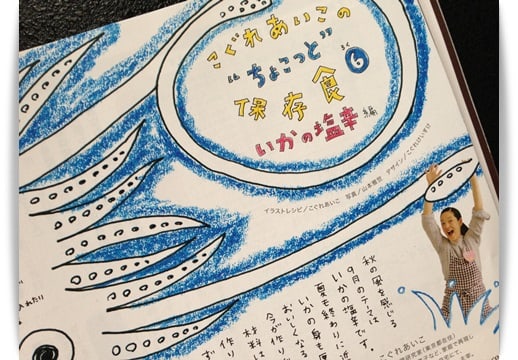 こぐれあいこの
“ちょこっと”
保存食⑥
いかの塩辛編
イラストレシピ/こぐれあいこ 写真/山本雅世 デザイン/こぐれけいすけ
秋の風を感じる
9月のテーマは、
いかの塩辛です。
夏も終わりに
おいしくなる
いかの身
今が作り
材料は
作り
ず
こぐれあいこ